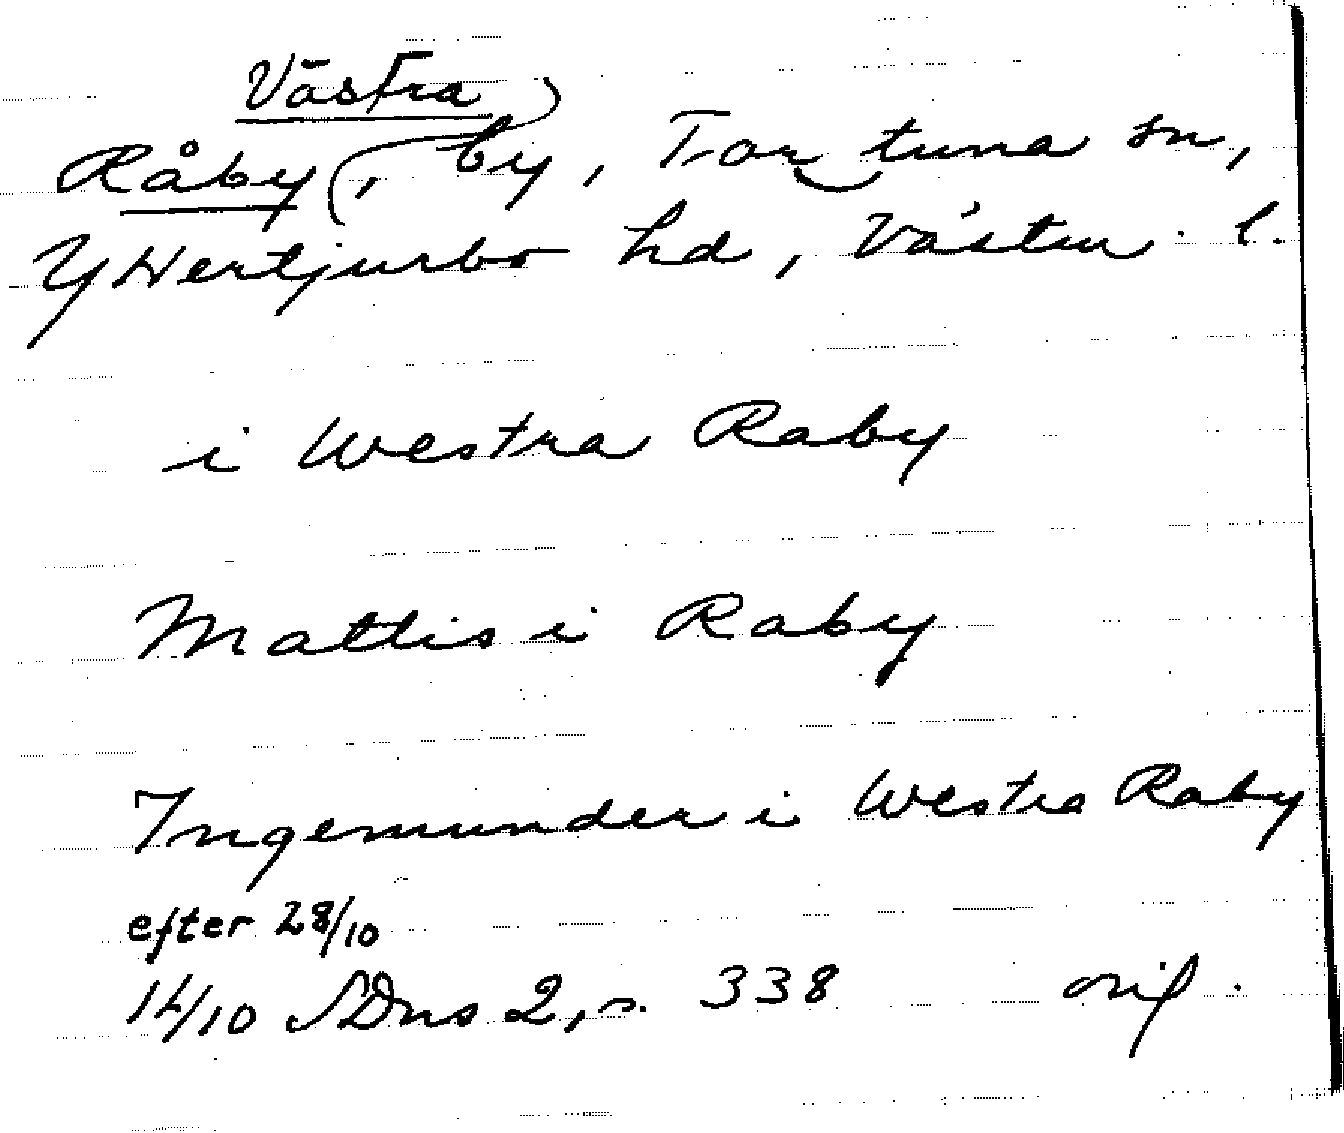 Västra
Råby, by, Tortuna sn,
Ytertjurbo hd, Västm. l.
i Westra Raby
Mattis i Raby
Ingemunder i Westra Raby
efter 28/10
14/10 SDns 2, s. 338 orig.